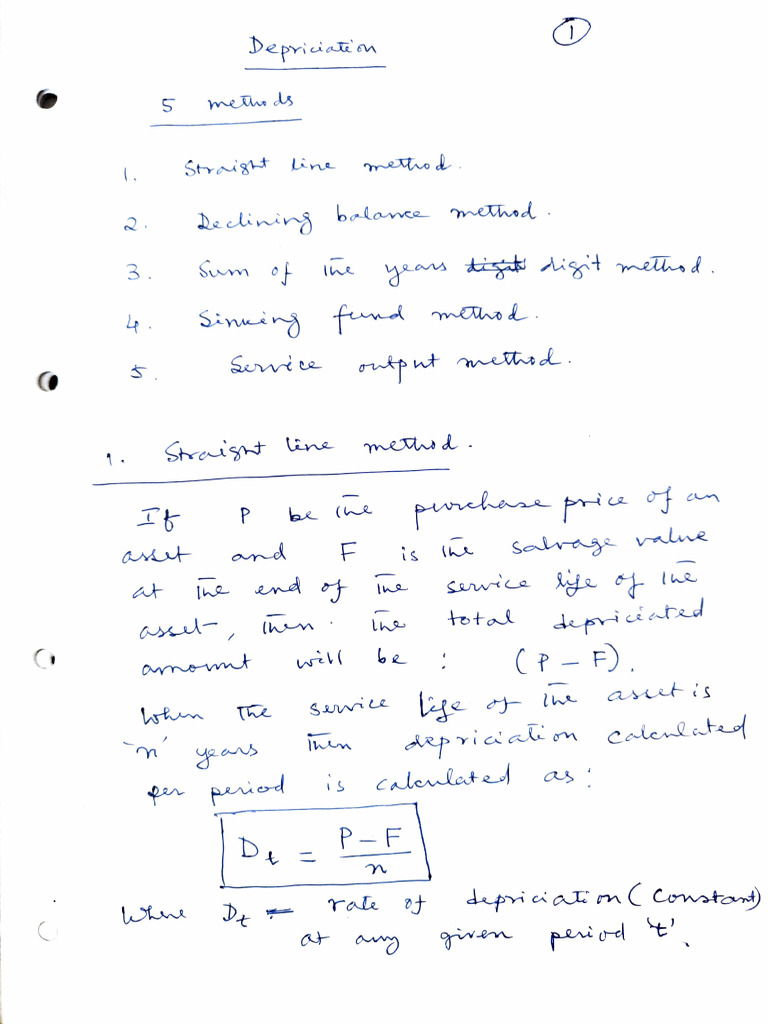 1
Depriciation
5 methods
1. Straight line method.
2. Declining balance method.
3. Sum of the years digit digit method.
4. Sinking fund method.
5. Service output method.
1. Straight line method.
If P be the purchase price of an
asset and F is the salvage value
at the end of the service life of the
asset, then the total depriciated
amount will be : (P – F).
When the service life of the asset is
'n' years then depriciation calculated
per period is calculated as:
D_t = (P – F)/n
Where D_t = rate of depriciation (Constant)
at any given period 't'.